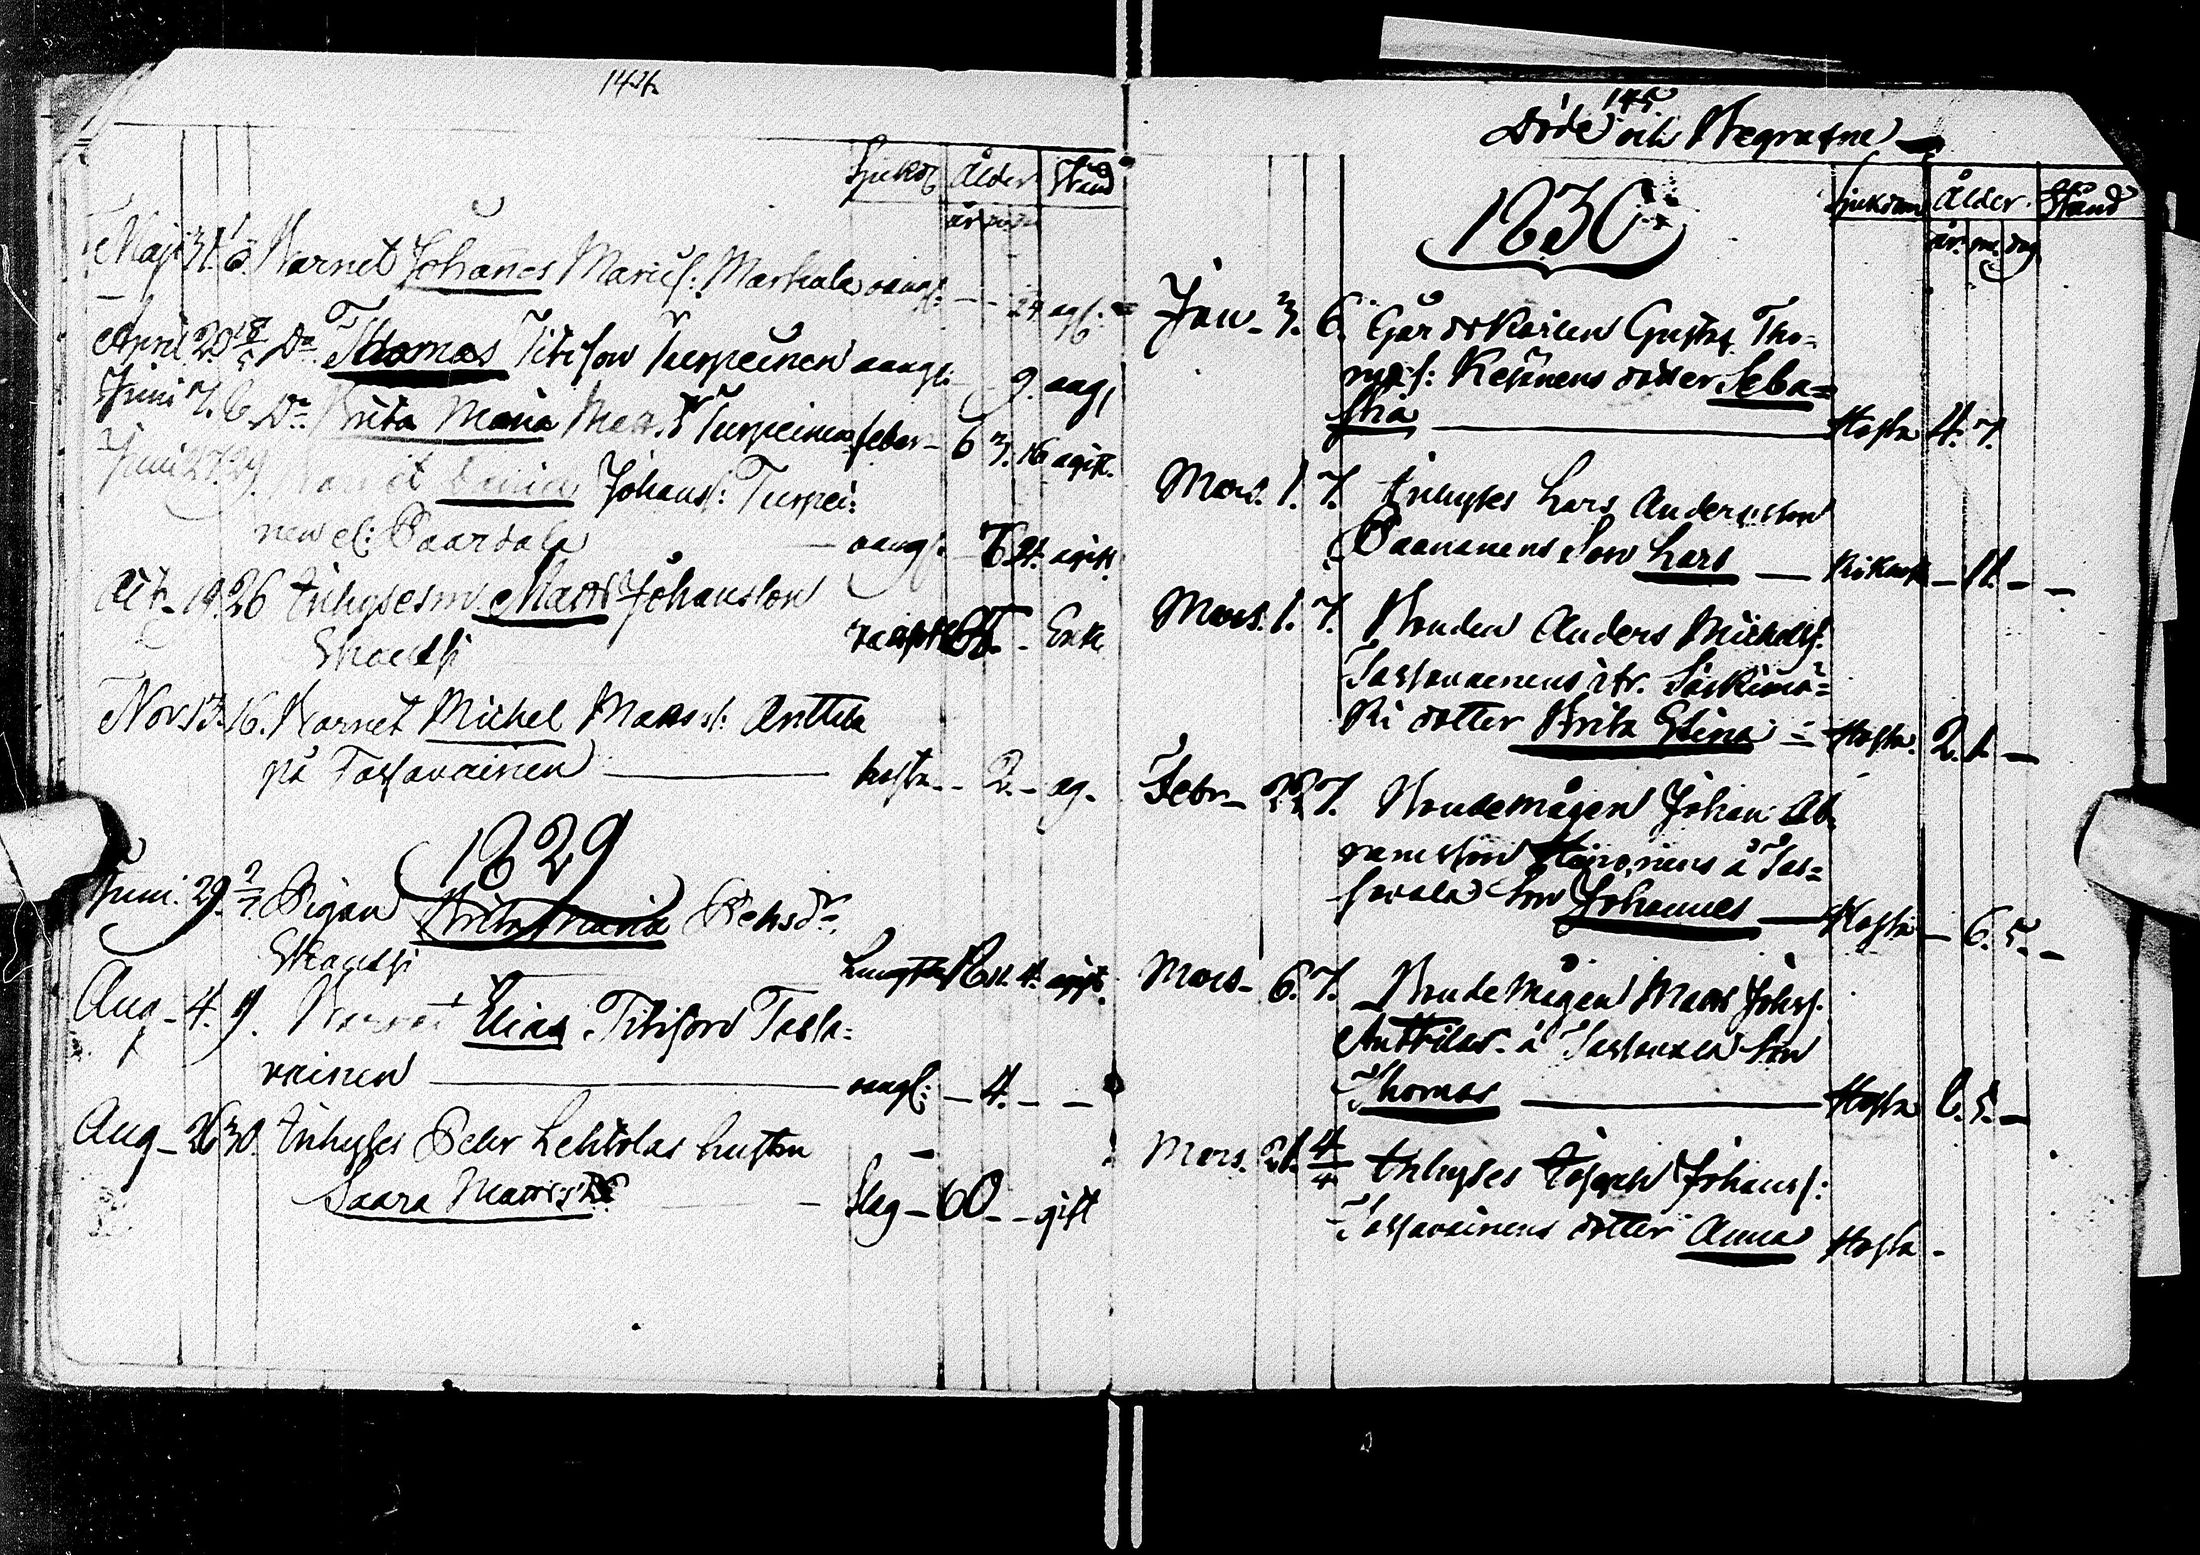 144.
Sjukd: Ålder Stånd
år
Maj 31. 6. Barnet Johanes Marics: Markula oangf: - - 24 ogf:
April 20 18/5 Do Thomas Tibison Turpeinen oangf: - - 9. oag,
Juni 7. 6. Do Brita Maria Turpeinen feber - 6 3. 16 ogift.
Juni 27. 29. Barnet Johansf: Turpei:
nen el: Paardala oangf. ogift.
Oct. 19. 26 Inhysesm Matts Johansson
Skoutsi Enk.
Nov 13. 16. Barnet Michel Matss: Anttila
på Tassavainen hosta - - 2. - og.
1829
Juni. 29. 2/7 Pigan Brita Maria Pehrsdr.
Skoutsi ogift.
Aug - 4. 9. Barnet Elias Tibison Tassa=
vainen oangf: - 4. - -
Aug - 26 30. Inhyses Pehr Lehtolas hustru
Saara Mattsdr Slag - 60 - - gift
145
Döde och Begrafne
1830
Sjukdom Ålder Stånd
år. m. dag
Jan - 3. 6. Gårdskarlen Gustaf Tho=
mæs: Kesänens dotter Seba=
stia Hosta 4. 7.
Mars. 1. 7. Inhyses Lars Andersson
Paananens Son Lars - 11. - -
Mars. 1. 7. Bonden Anders Michelsf.
Tassavainens dotter Brita Stina Hosta. 2. 1. -
Febr - 7. Bondemågen Johan Ab=
ramsson å Tas=
savala Son Johannes Hosta - 6. 5. -
Mars - 6. 7. Bondemågen Matts Johsf.
Anttilas å Tassavala Son
Thomas Hosta 5. -
Mars. 21. 4/4 Inhyses Joseph Johansf:
Tassavainens dotter Anna Hosta -